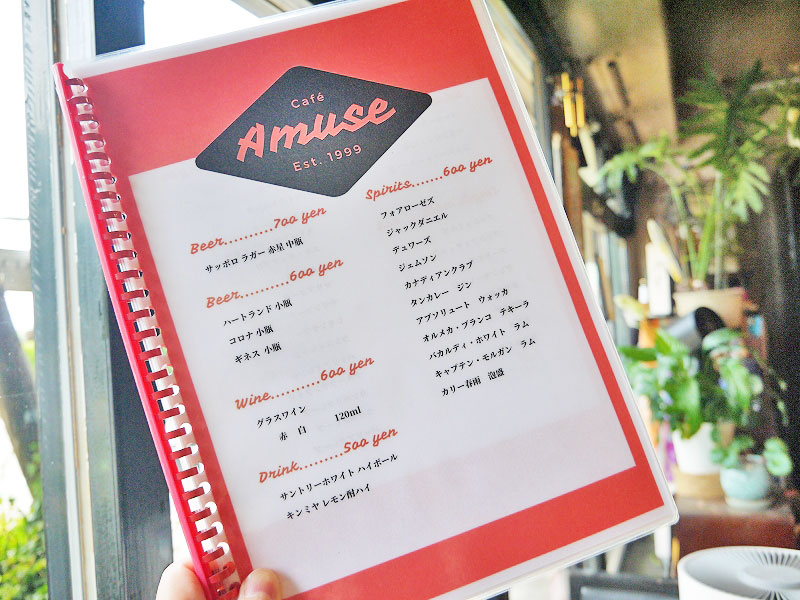 Café
Amuse
Est. 1999
Beer..........700 yen
サッポロ ラガー 赤星 中瓶
Beer..........600 yen
ハートランド 小瓶
コロナ 小瓶
ギネス 小瓶
Wine.........600 yen
グラスワイン
赤 白 120ml
Drink.........500 yen
サントリーホワイト ハイボール
キンミヤ レモン酎ハイ
Spirits.......600 yen
フォアローゼズ
ジャックダニエル
デュワーズ
ジェムソン
カナディアンクラブ
タンカレー ジン
アブソリュート ウォッカ
オルメカ・ブランコ テキーラ
バカルディ・ホワイト ラム
キャプテン・モルガン ラム
カリー春雨 泡盛